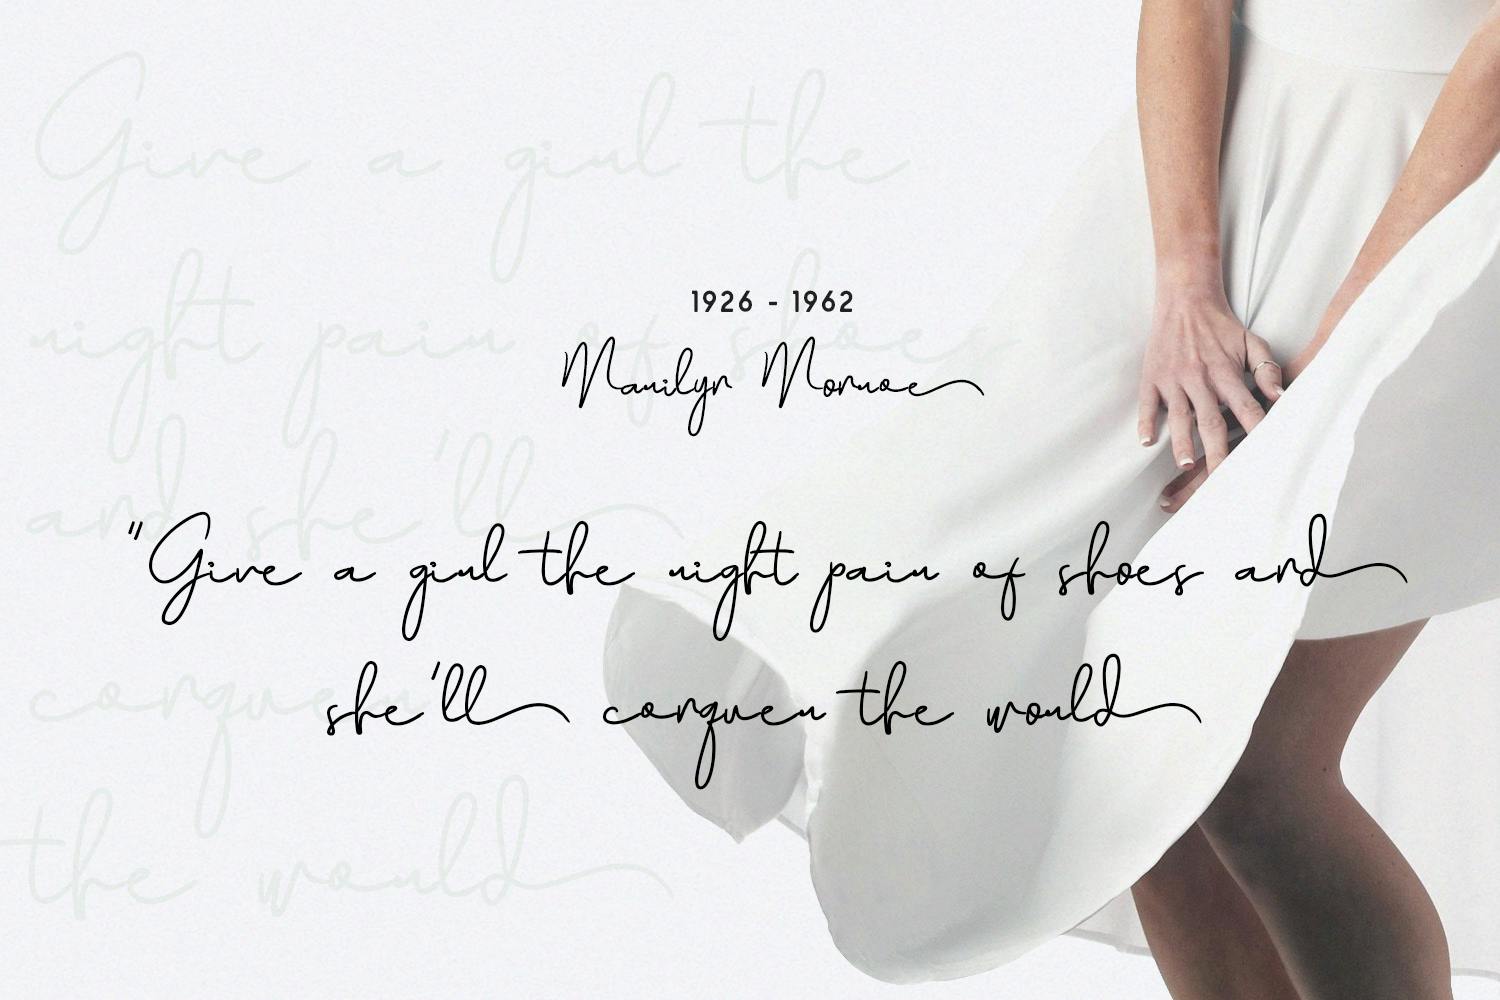 Give a girl the
night pair of shoes
and she'll
conquer
the world
1926 - 1962
Marilyn Monroe
"Give a girl the night pair of shoes and
she'll conquer the world